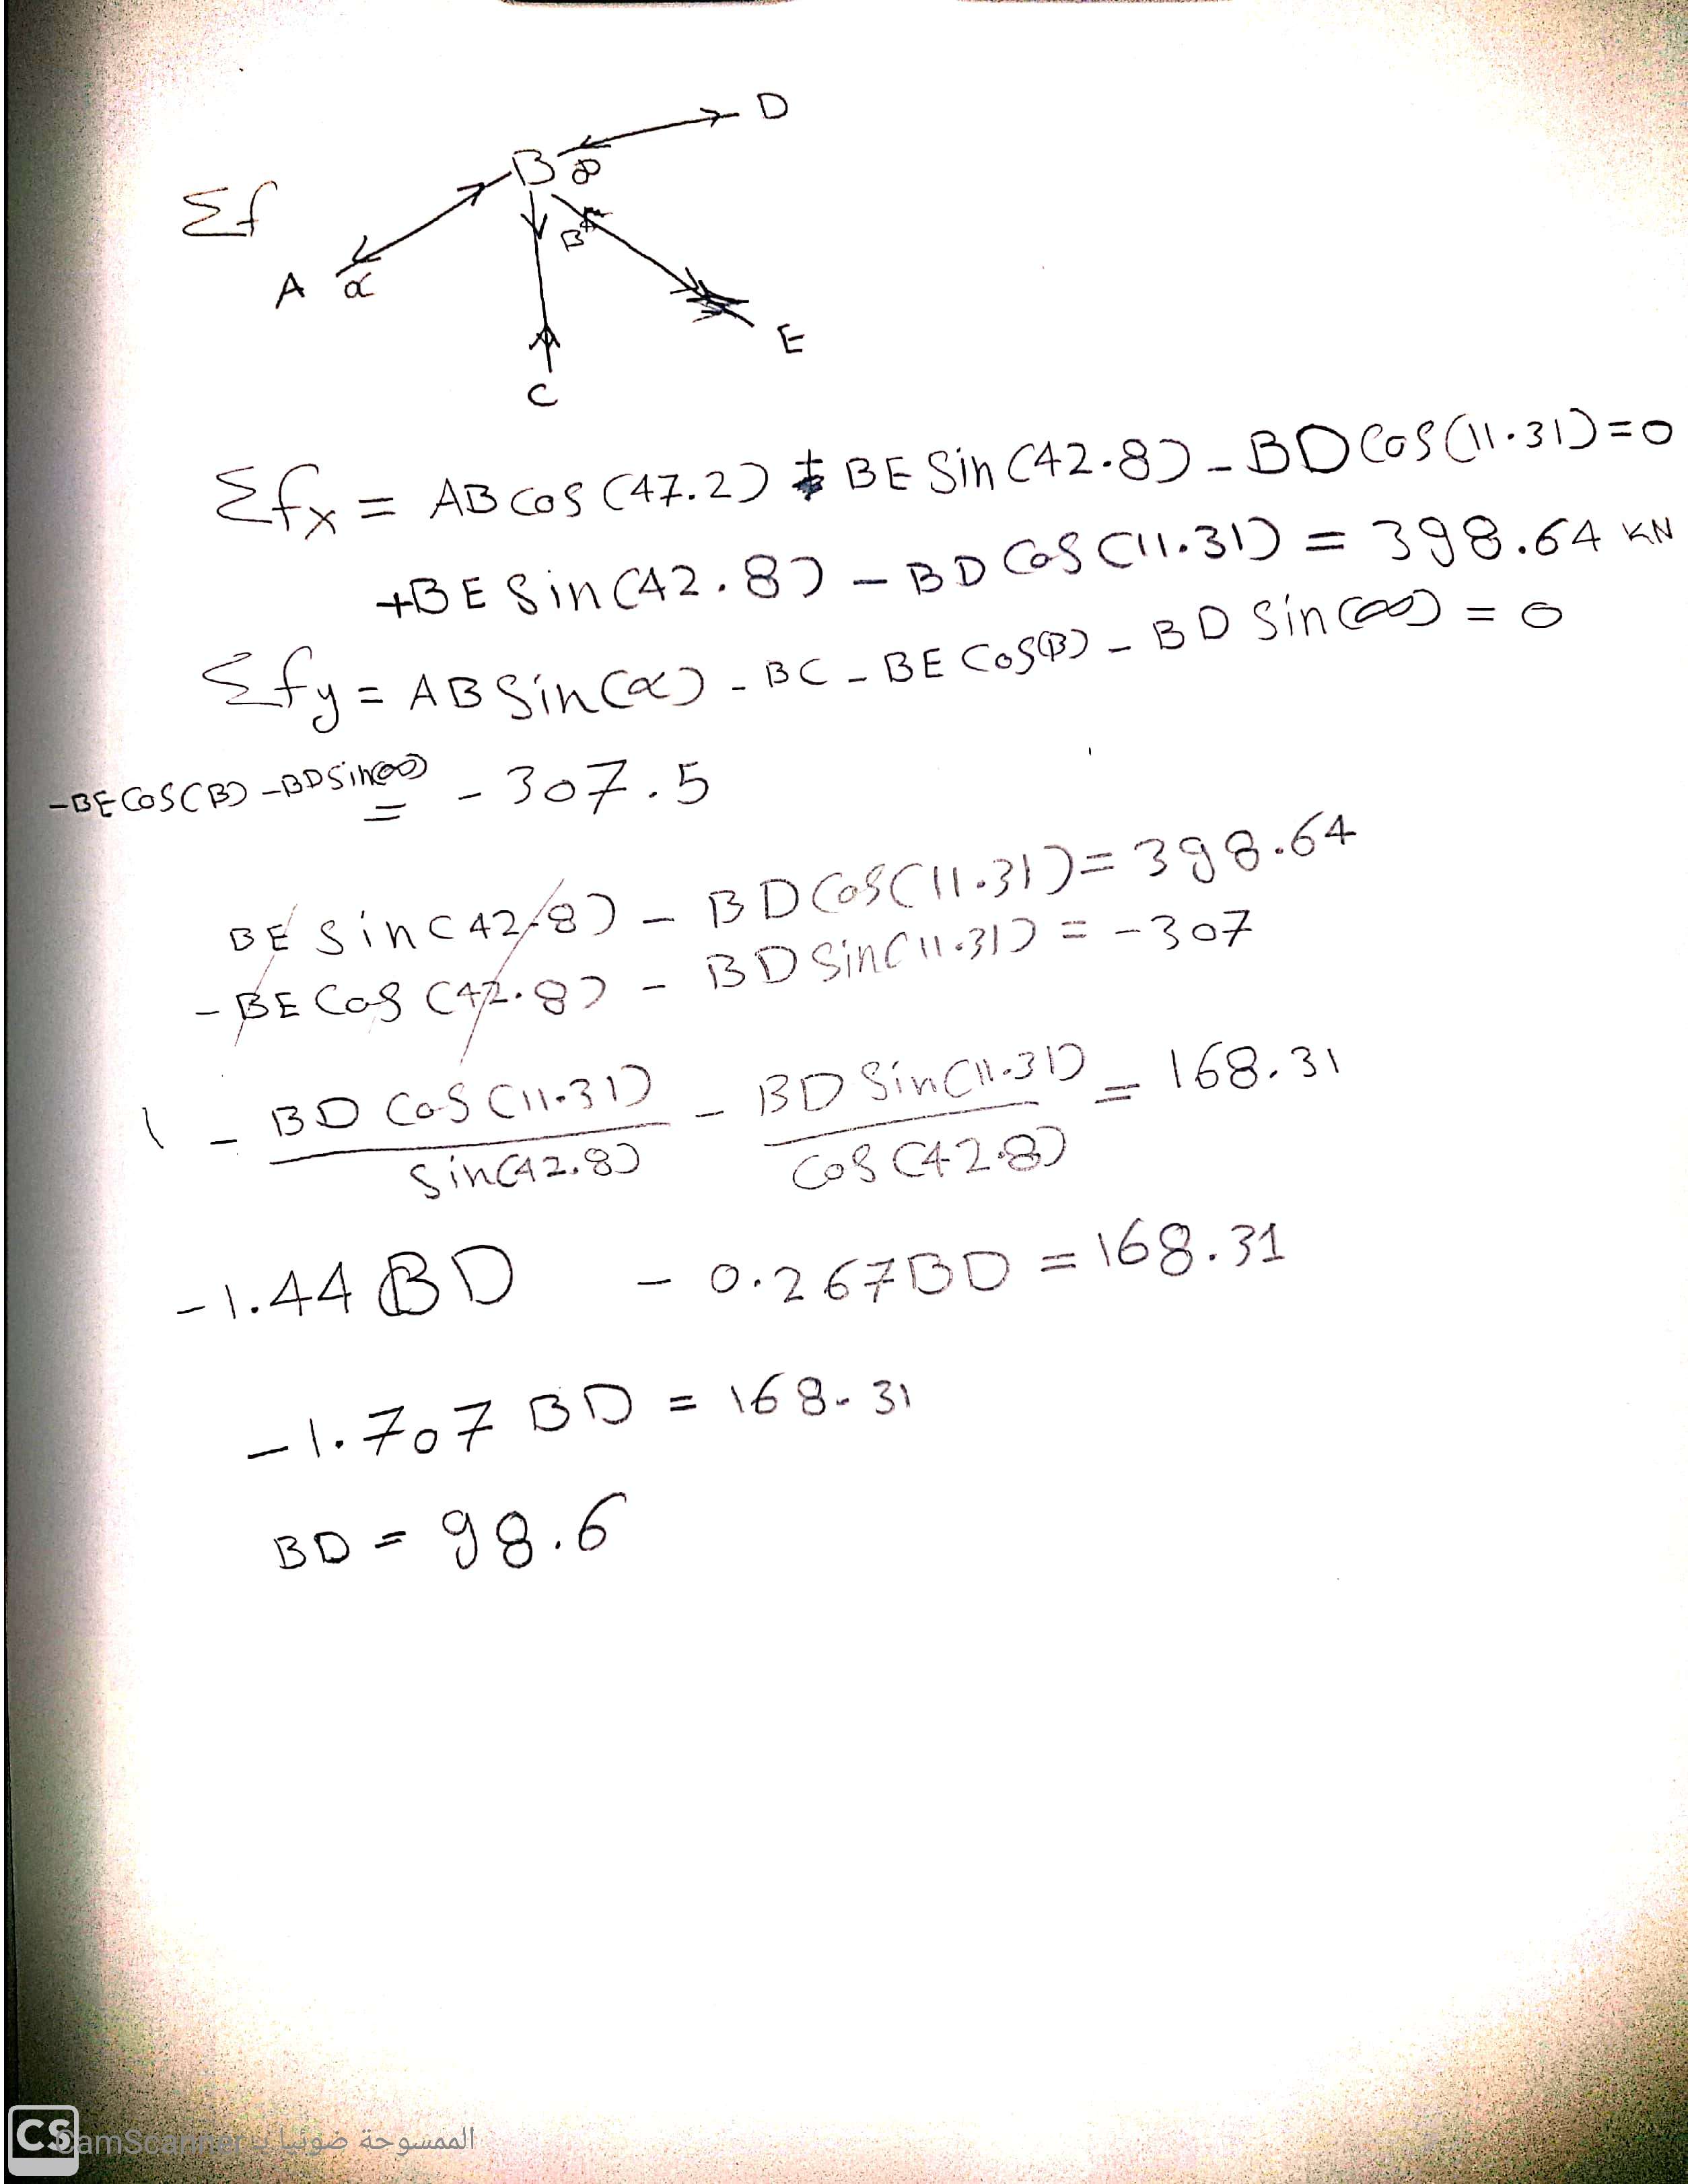 D
B ∞
Σf
B
A α
E
C
Σfx = AB cos (47.2) + BE Sin (42.8) - BD Cos (11.31) = 0
+BE Sin (42.8) - BD Cos (11.31) = 398.64 KN
Σfy = AB Sin(α) - BC - BE Cos(B) - BD Sin(∞) = 0
-BE Cos(B) - BD Sin(∞) = -307.5
BE Sin(42.8) - BD Cos(11.31) = 398.64
-BE Cos (42.8) - BD Sin(11.31) = -307
- BD Cos (11.31) / Sin(42.8) - BD Sin(11.31) / Cos (42.8) = 168.31
-1.44 BD - 0.267BD = 168.31
-1.707 BD = 168.31
BD = 98.6
CS CamScanner الممسوحة ضوئيا بـ